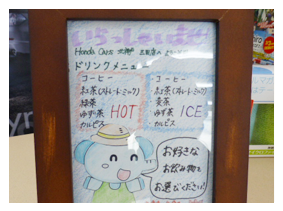 いらっしゃいませ
Honda Cars
ドリンクメニュー
コーヒー
紅茶(ストレート・ミルク)
緑茶
ゆず茶
カルピス
HOT
コーヒー
紅茶(ストレート・ミルク)
麦茶
ゆず茶
カルピス
ICE
お好きな
お飲み物を
お選びください!